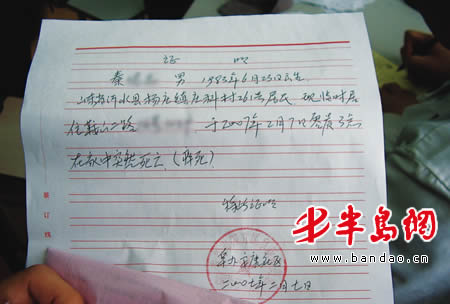 证明
秦 男 1983年6月23日出生
山东省沂水县杨庄镇庄科村261号居民 现临时居
住鞍山二路 于2007年2月7日零度3点
在家中突然死亡（猝死）
特此证明
二〇〇七年二月七日
装订线
半岛网
www.bandao.cn